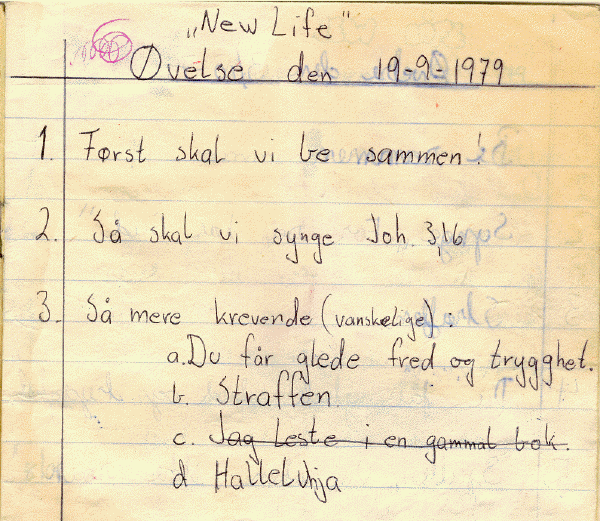 „New Life"
Øvelse den 19-9-1979
1. Først skal vi be sammen!
2. Så skal vi synge Joh. 3,16
3. Så mere krevende (vanskelige):
a. Du får glede fred og trygghet.
b. Straffen
c. Jag leste i en gammal bok.
d Halleluhja